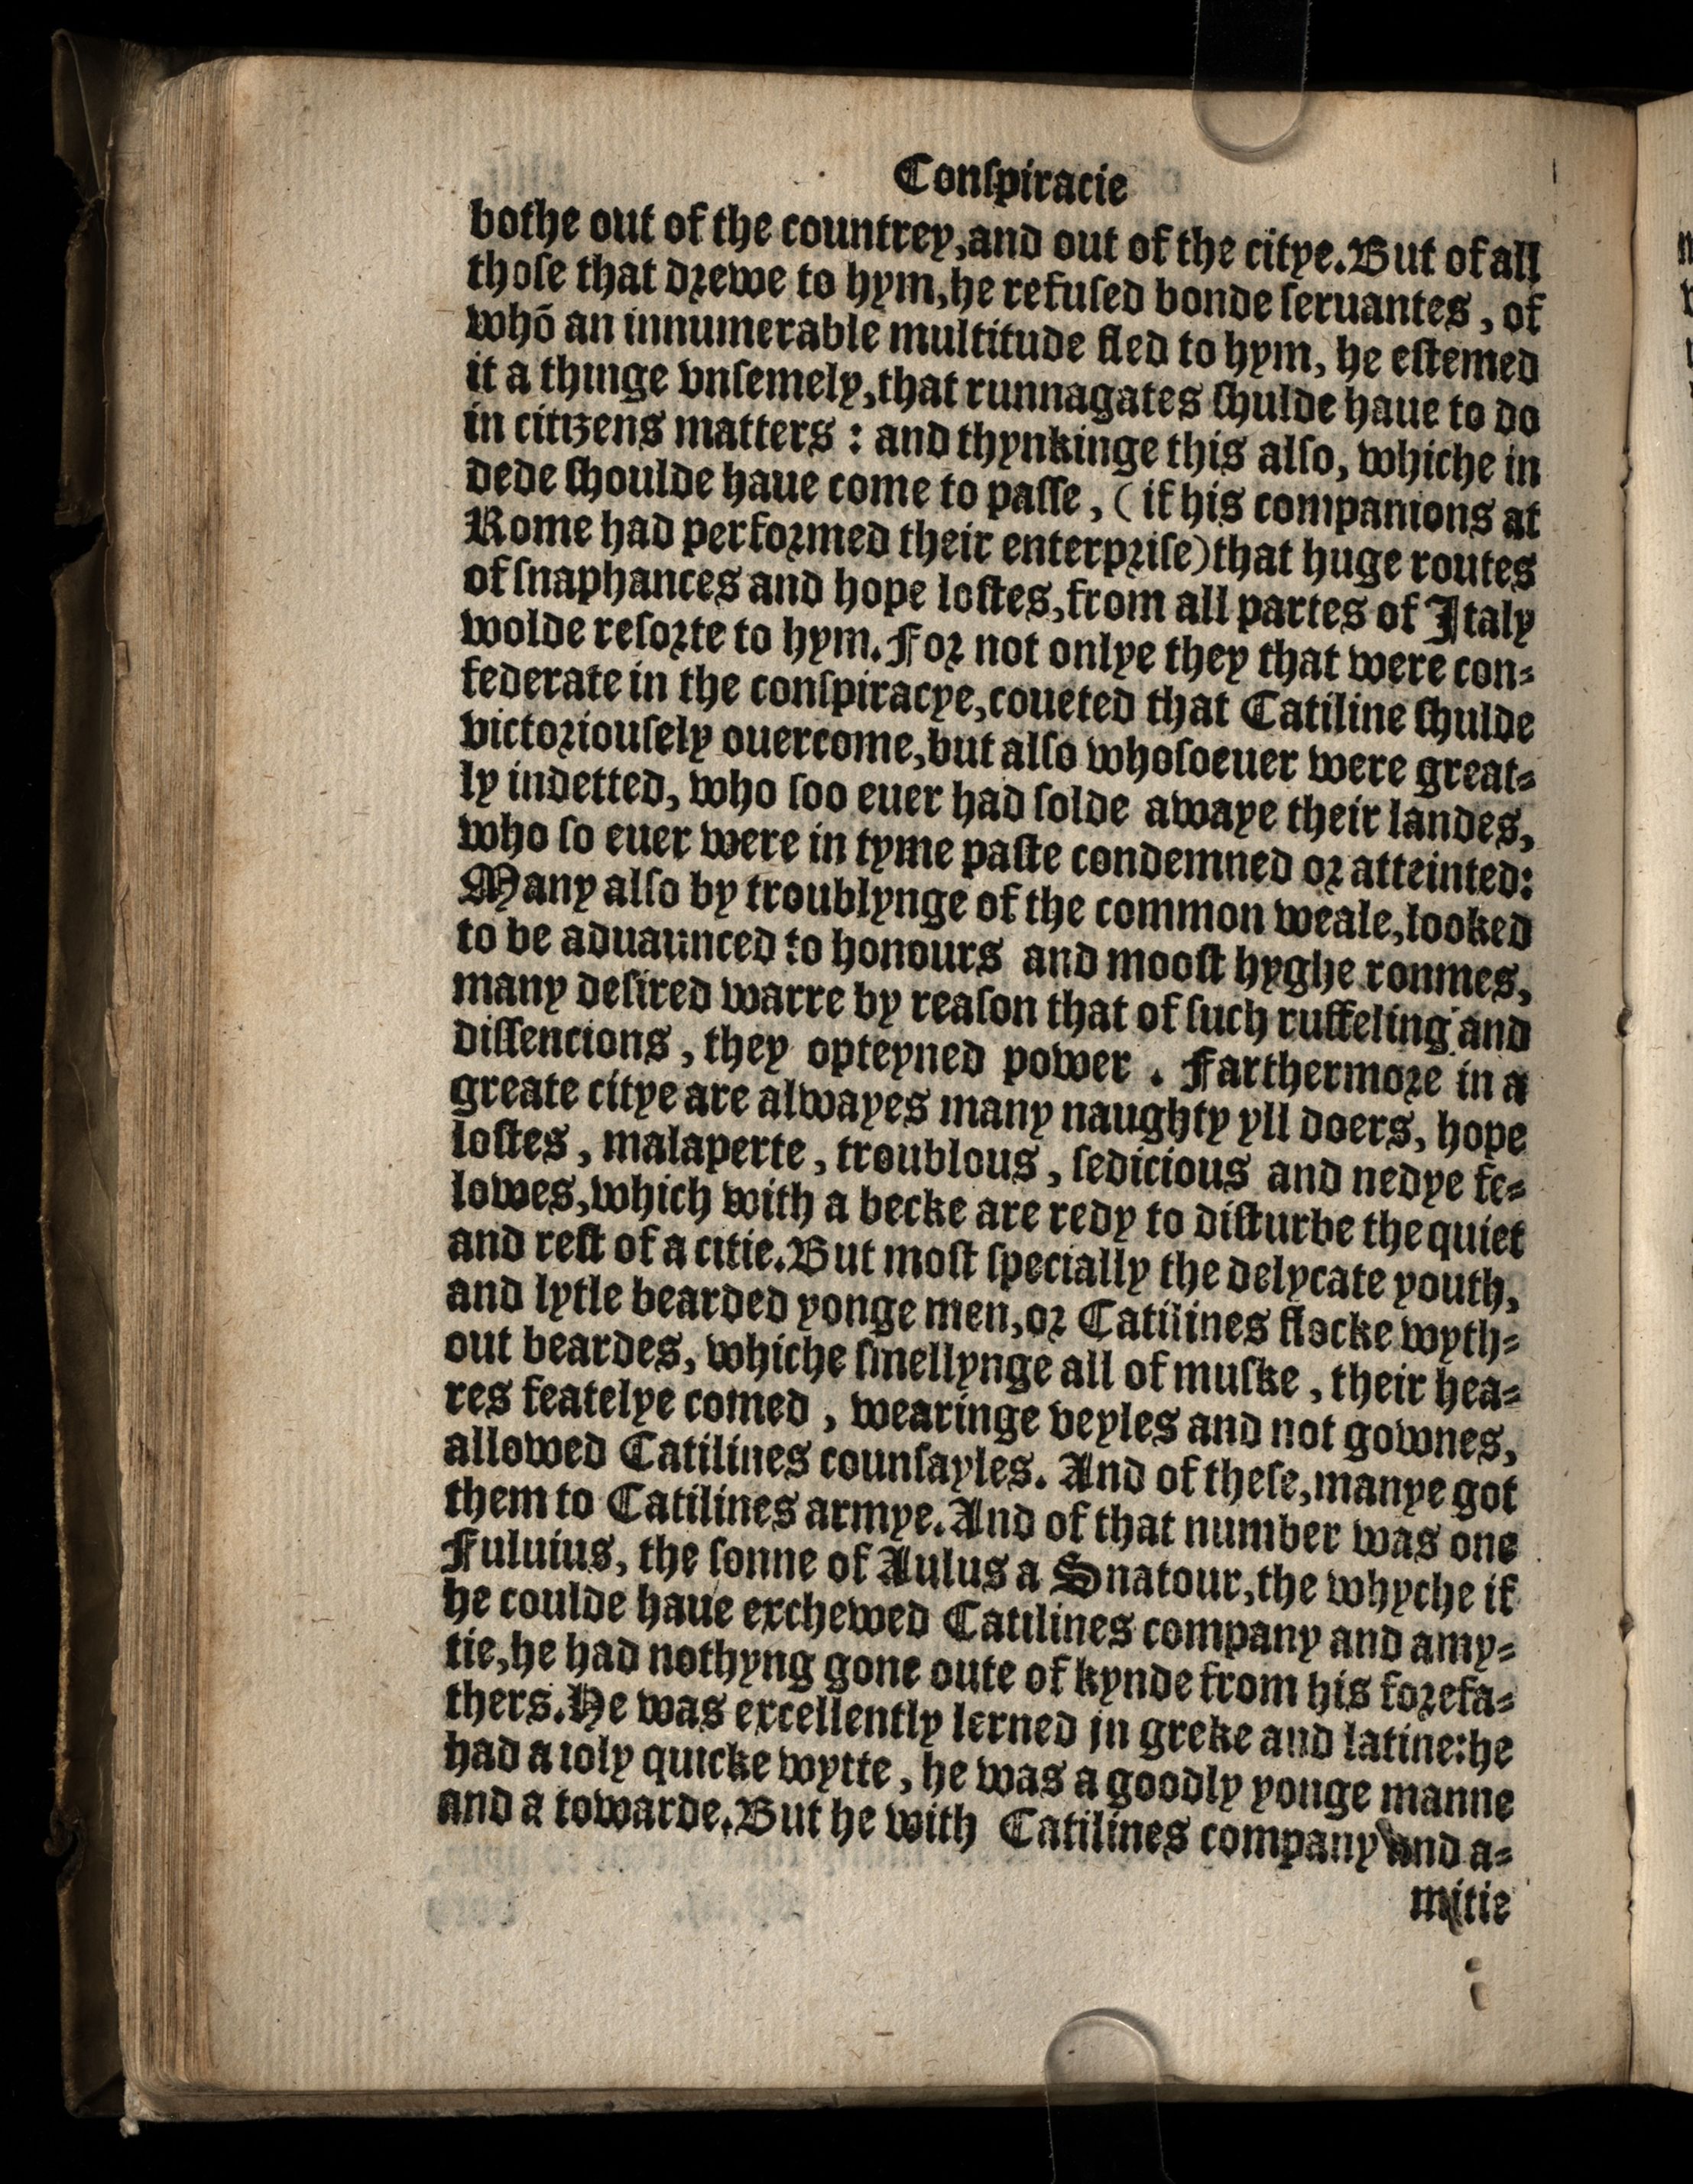 Conſpiracie
bothe out of the countrey,and out of the citye.But of all
thoſe that drewe to hym,he refuſed bonde ſeruantes, of
whō an innumerable multitude fled to hym, he eſtemed
it a thinge vnſemely,that runnagates ſhulde haue to do
in citizens matters : and thynkinge this alſo, whiche in
dede ſhoulde haue come to paſſe, (if his companions at
Rome had performed their enterpriſe)that huge routes
of ſnaphances and hope loſtes,from all partes of Italy
wolde reſorte to hym.For not onlye they that were con=
federate in the conſpiracye,coueted that Catiline ſhulde
victoriouſely ouercome,but alſo whoſoeuer were great=
ly indetted, who ſoo euer had ſolde awaye their landes,
who ſo euer were in tyme paſte condemned or atteinted:
Many alſo by troublynge of the common weale,looked
to be aduaunced to honours and mooſt hyghe ronmes,
many deſired warre by reaſon that of ſuch ruffeling and
diſſencions, they opteyned power . Farthermore in a
greate citye are alwayes many naughty yll doers, hope
loſtes, malaperte, troublous, ſedicious and nedye fe=
lowes,which with a becke are redy to diſturbe the quiet
and reſt of a citie.But moſt ſpecially the delycate youth,
and lytle bearded yonge men,or Catilines flocke wyth=
out beardes, whiche ſmellynge all of muſke, their hea=
res featelye comed, wearinge veyles and not gownes,
allowed Catilines counſayles. And of theſe,manye got
them to Catilines armye.And of that number was one
Fuluius, the ſonne of Aulus a Snatour,the whyche if
he coulde haue exchewed Catilines company and amy=
tie,he had nothyng gone oute of kynde from his forefa=
thers.He was excellently lerned in greke and latine:he
had a ioly quicke wytte, he was a goodly yonge manne
and a towarde.But he with Catilines company and a=
mitie